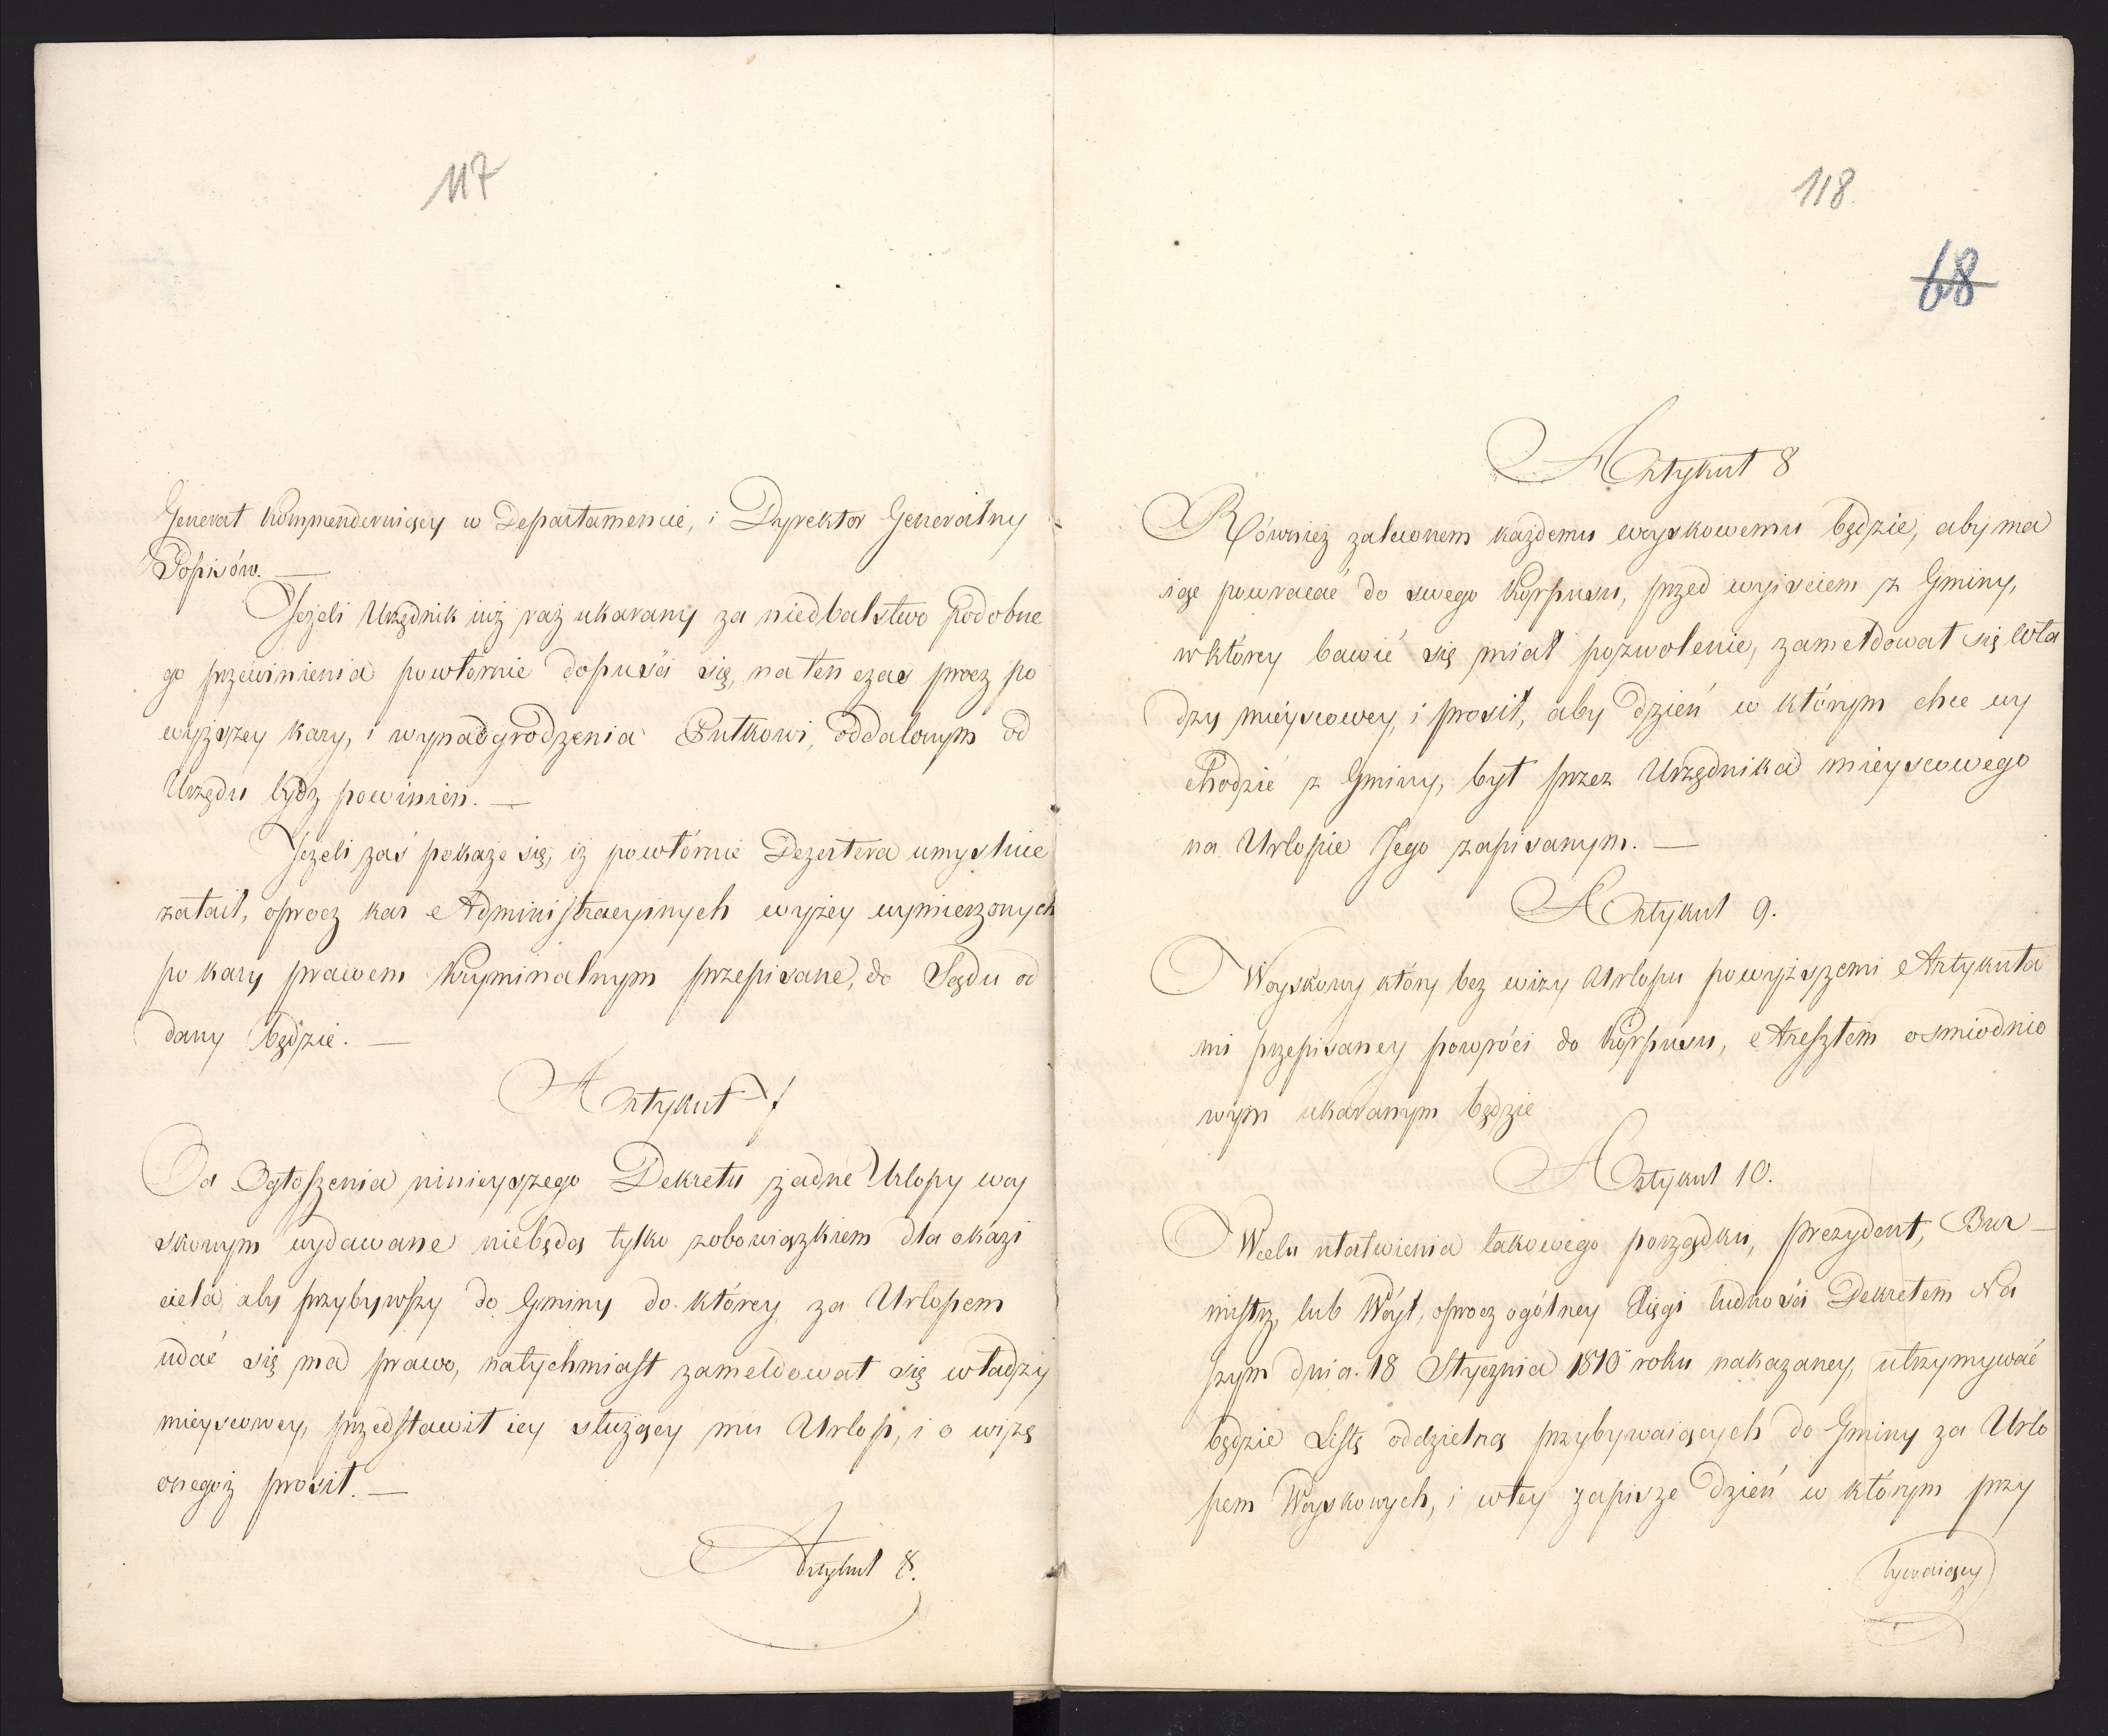 117
Generał kommenderuiący w Departamencie, i Dyrektor Generalny
Popisów. —
Jeżeli Urzędnik iuż raz ukarany za niedbalstwo podobne
go przewinienia powtórnie dopuści się, na ten czas procz po
wyższey kary, i wynadgrodzenia Pułkowi, oddalonym od
Urzędu bydz powinien. —
Jeżeli zaś pokaże się, iż powtórnie Dezertera umyslnie
zataił, oprocz kar Administracyinych wyżey wymierzonych
po kary prawem kryminalnym przepisane, do Sądu od
dany będzie. —
Artykuł 7
Od Ogłoszenia ninieyszego Dekretu żadne Urlopy woy
skowym wydawane niebędą tylko zobowiązkiem dla okazi
ciela aby przybywszy do Gminy do którey za Urlopem
udać się ma prawo, natychmiast zameldował się władzy
mieyscowey, przedstawił iey służący mu Urlop, i o wizę
onegoż prosił. —
Artykuł 8.
118.
68
Artykuł 8
Również zaleconem każdemu woyskowemu będzie, aby ma
iąc powracać do swego Korpusu, przed wyisciem z Gminy,
w którey bawić się miał pozwolenie, zameldował się wła
dzy mieyscowey, i prosił, aby dzień w którym chce wy
chodzić z Gminy, był przez Urzędnika mieyscowego
na Urlopie Jego zapisanym. —
Artykuł 9.
Woyskowy który bez wizy Urlopu powyższemi Artykuła
mi przepisaney powróci do Korpusu, Aresztem osmiodnio
wym ukaranym będzie
Artykuł 10.
W celu ułatwienia takowego porządku, Prezydent, Bur
mistrz, lub Wóyt, oprocz ogólney Xięgi ludności Dekretem Na
szym dnia 18 Stycznia 1810 roku nakazaney, utrzymywać
będzie Listę oddzielną przybywaiących do Gminy za Urlo
pem Woyskowych, i wtey zapisze dzień w którym przy
bywaiący